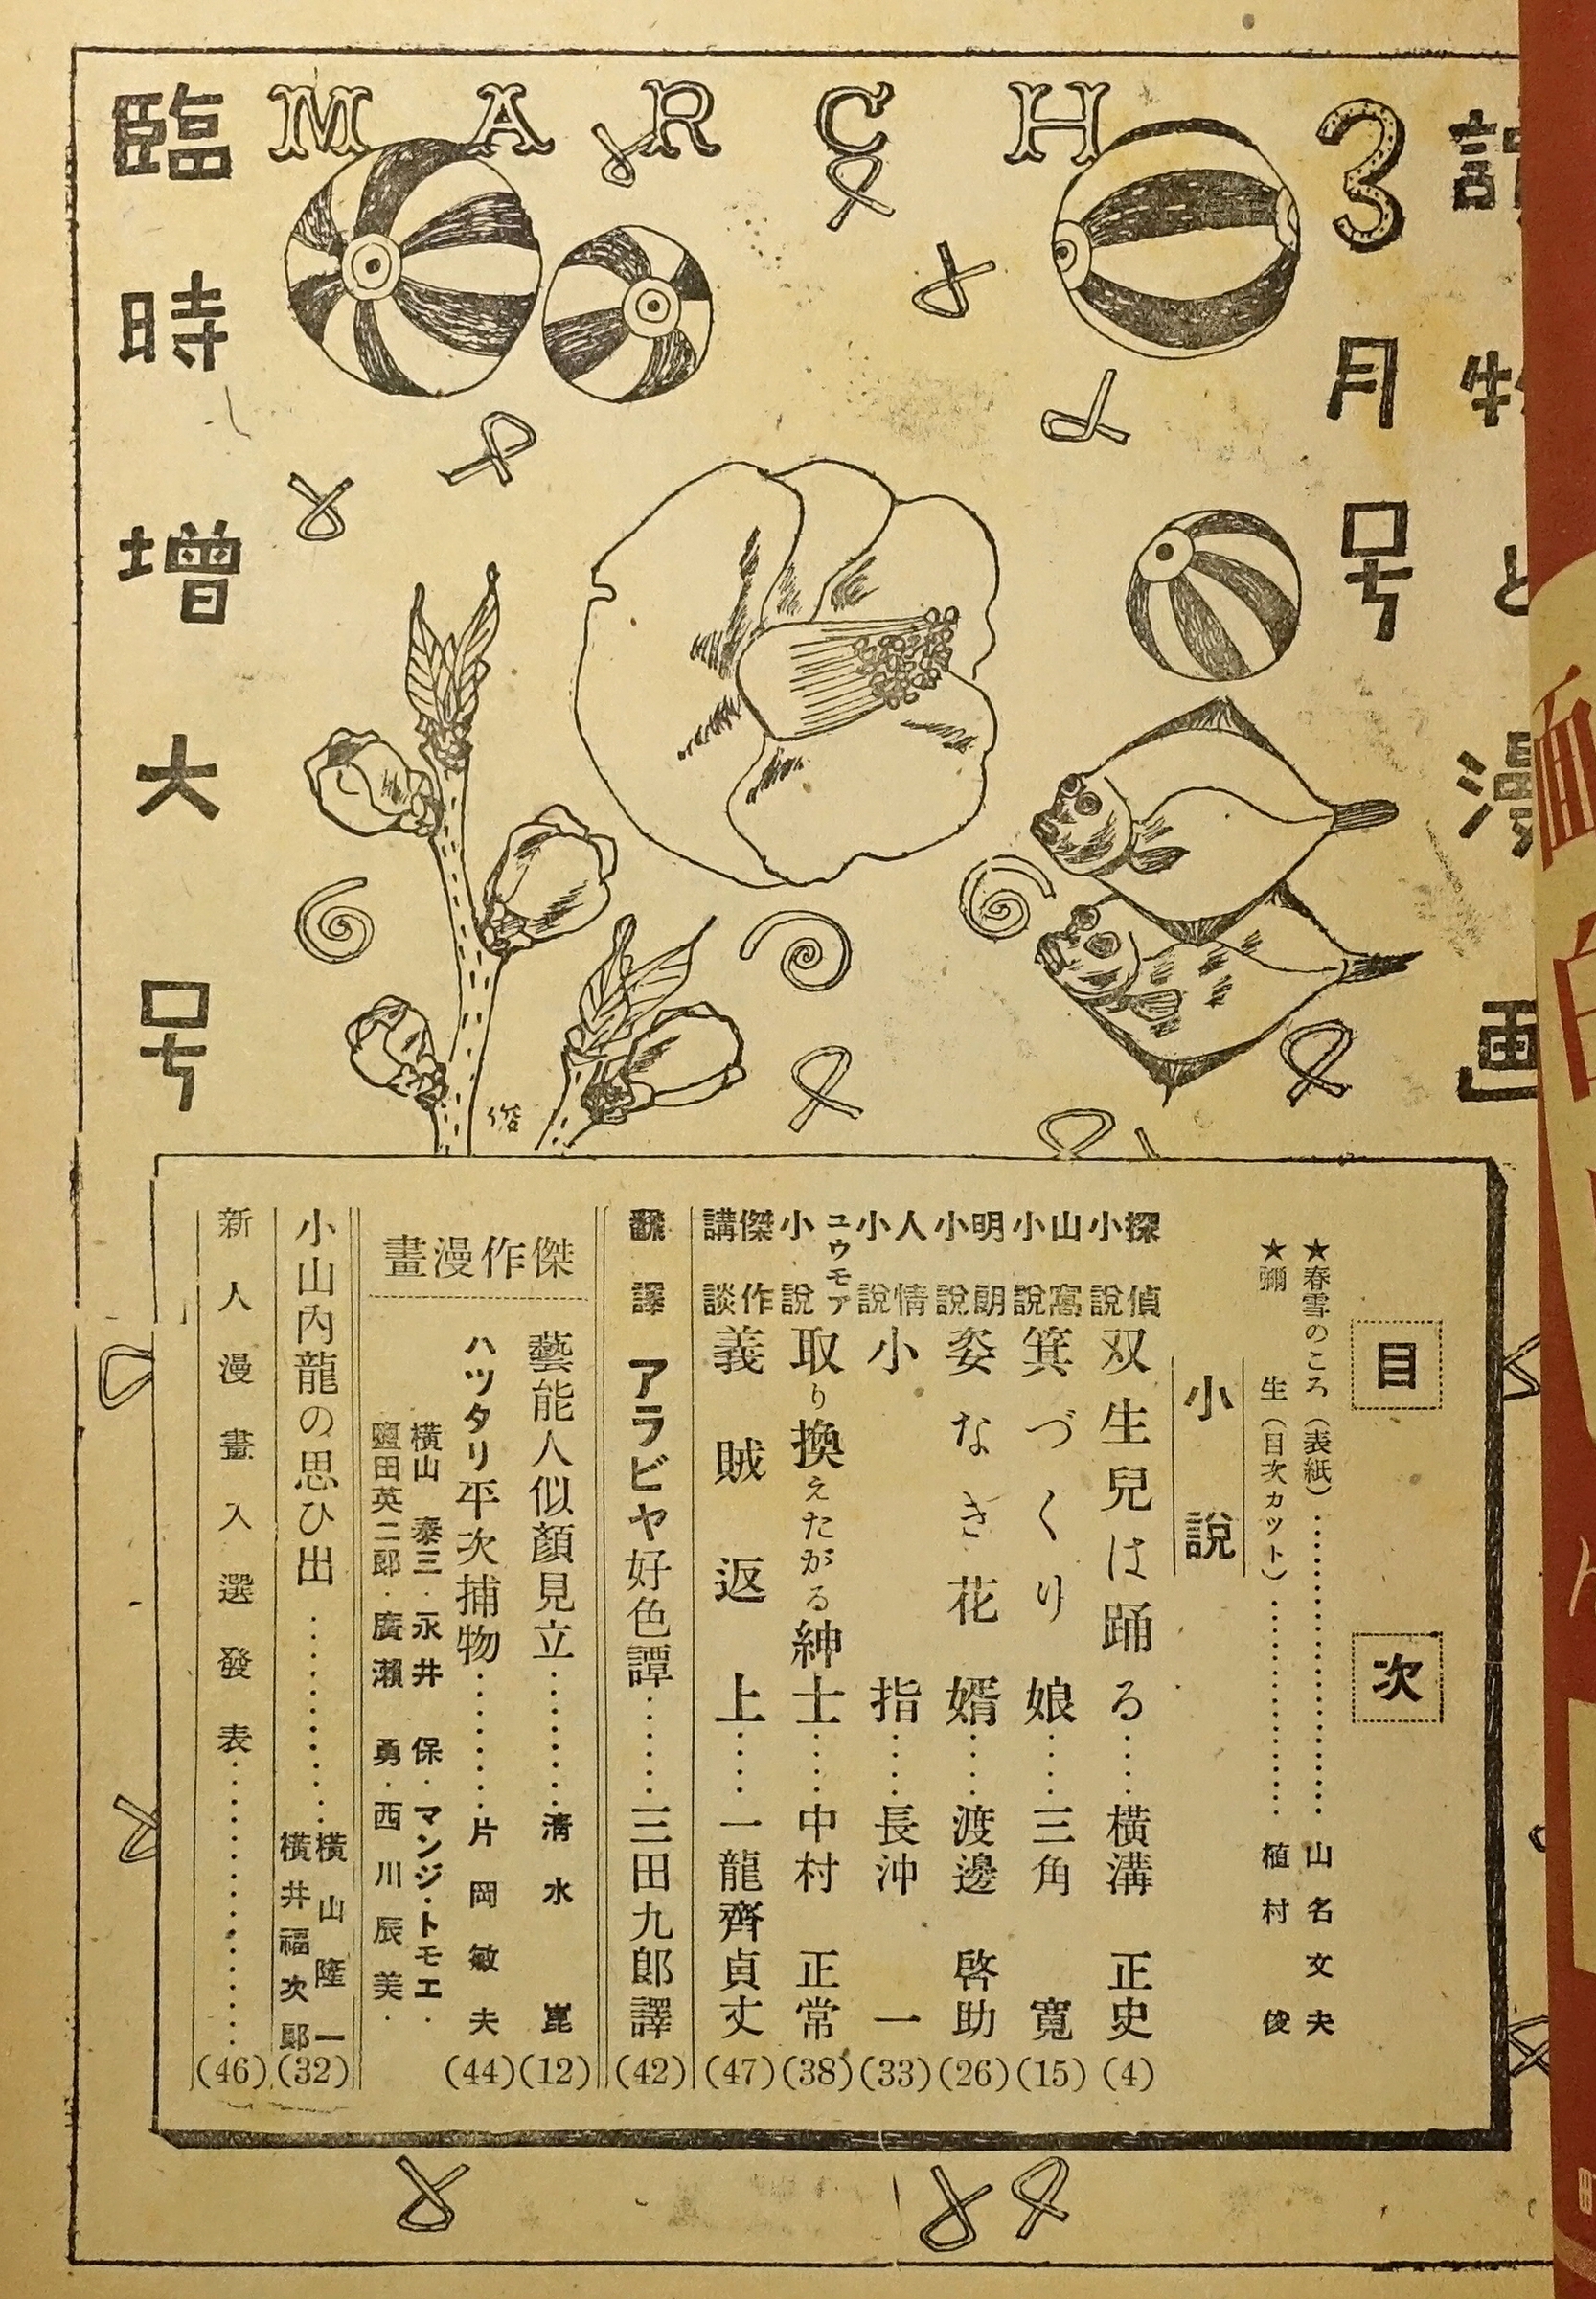 MARCH
3月号
読物と漫画
臨時増大号
俊
目次
★春雪のころ（表紙）……山名文夫
★彌生（目次カット）……植村俊
小説
探偵小說 双生兒は踊る……横溝正史(4)
山窩小說 箕づくり娘……三角寛(15)
明朗小說 姿なき花婿……渡邊啓助(26)
人情小說 小指……長沖一(33)
ユウモア小說 取り換えたがる紳士……中村正常(38)
傑作講談 義賊返上……一龍齊貞丈(47)
飜譯 アラビヤ好色譚……三田九郎譯(42)
傑作漫畫
藝能人似顏見立……清水崑(12)
ハツタリ平次捕物……片岡敏夫(44)
横山泰三・永井保・マンジ・トモエ・
鹽田英二郎・廣瀬勇・西川辰美・
小山内龍の思ひ出……横山隆一 横井福次郎(32)
新人漫畫入選發表……(46)